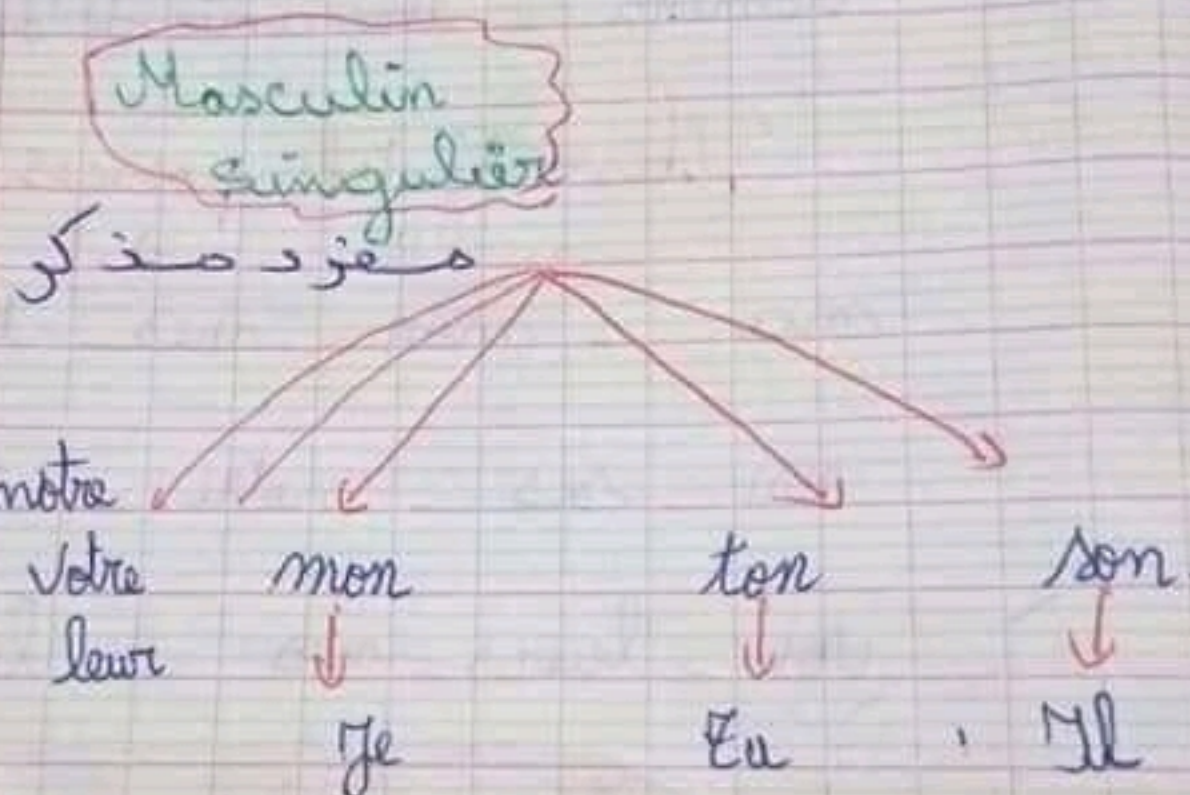 Masculin
singulier
مفرد مذكر
notre
votre mon ton son
leur
Je Tu Il